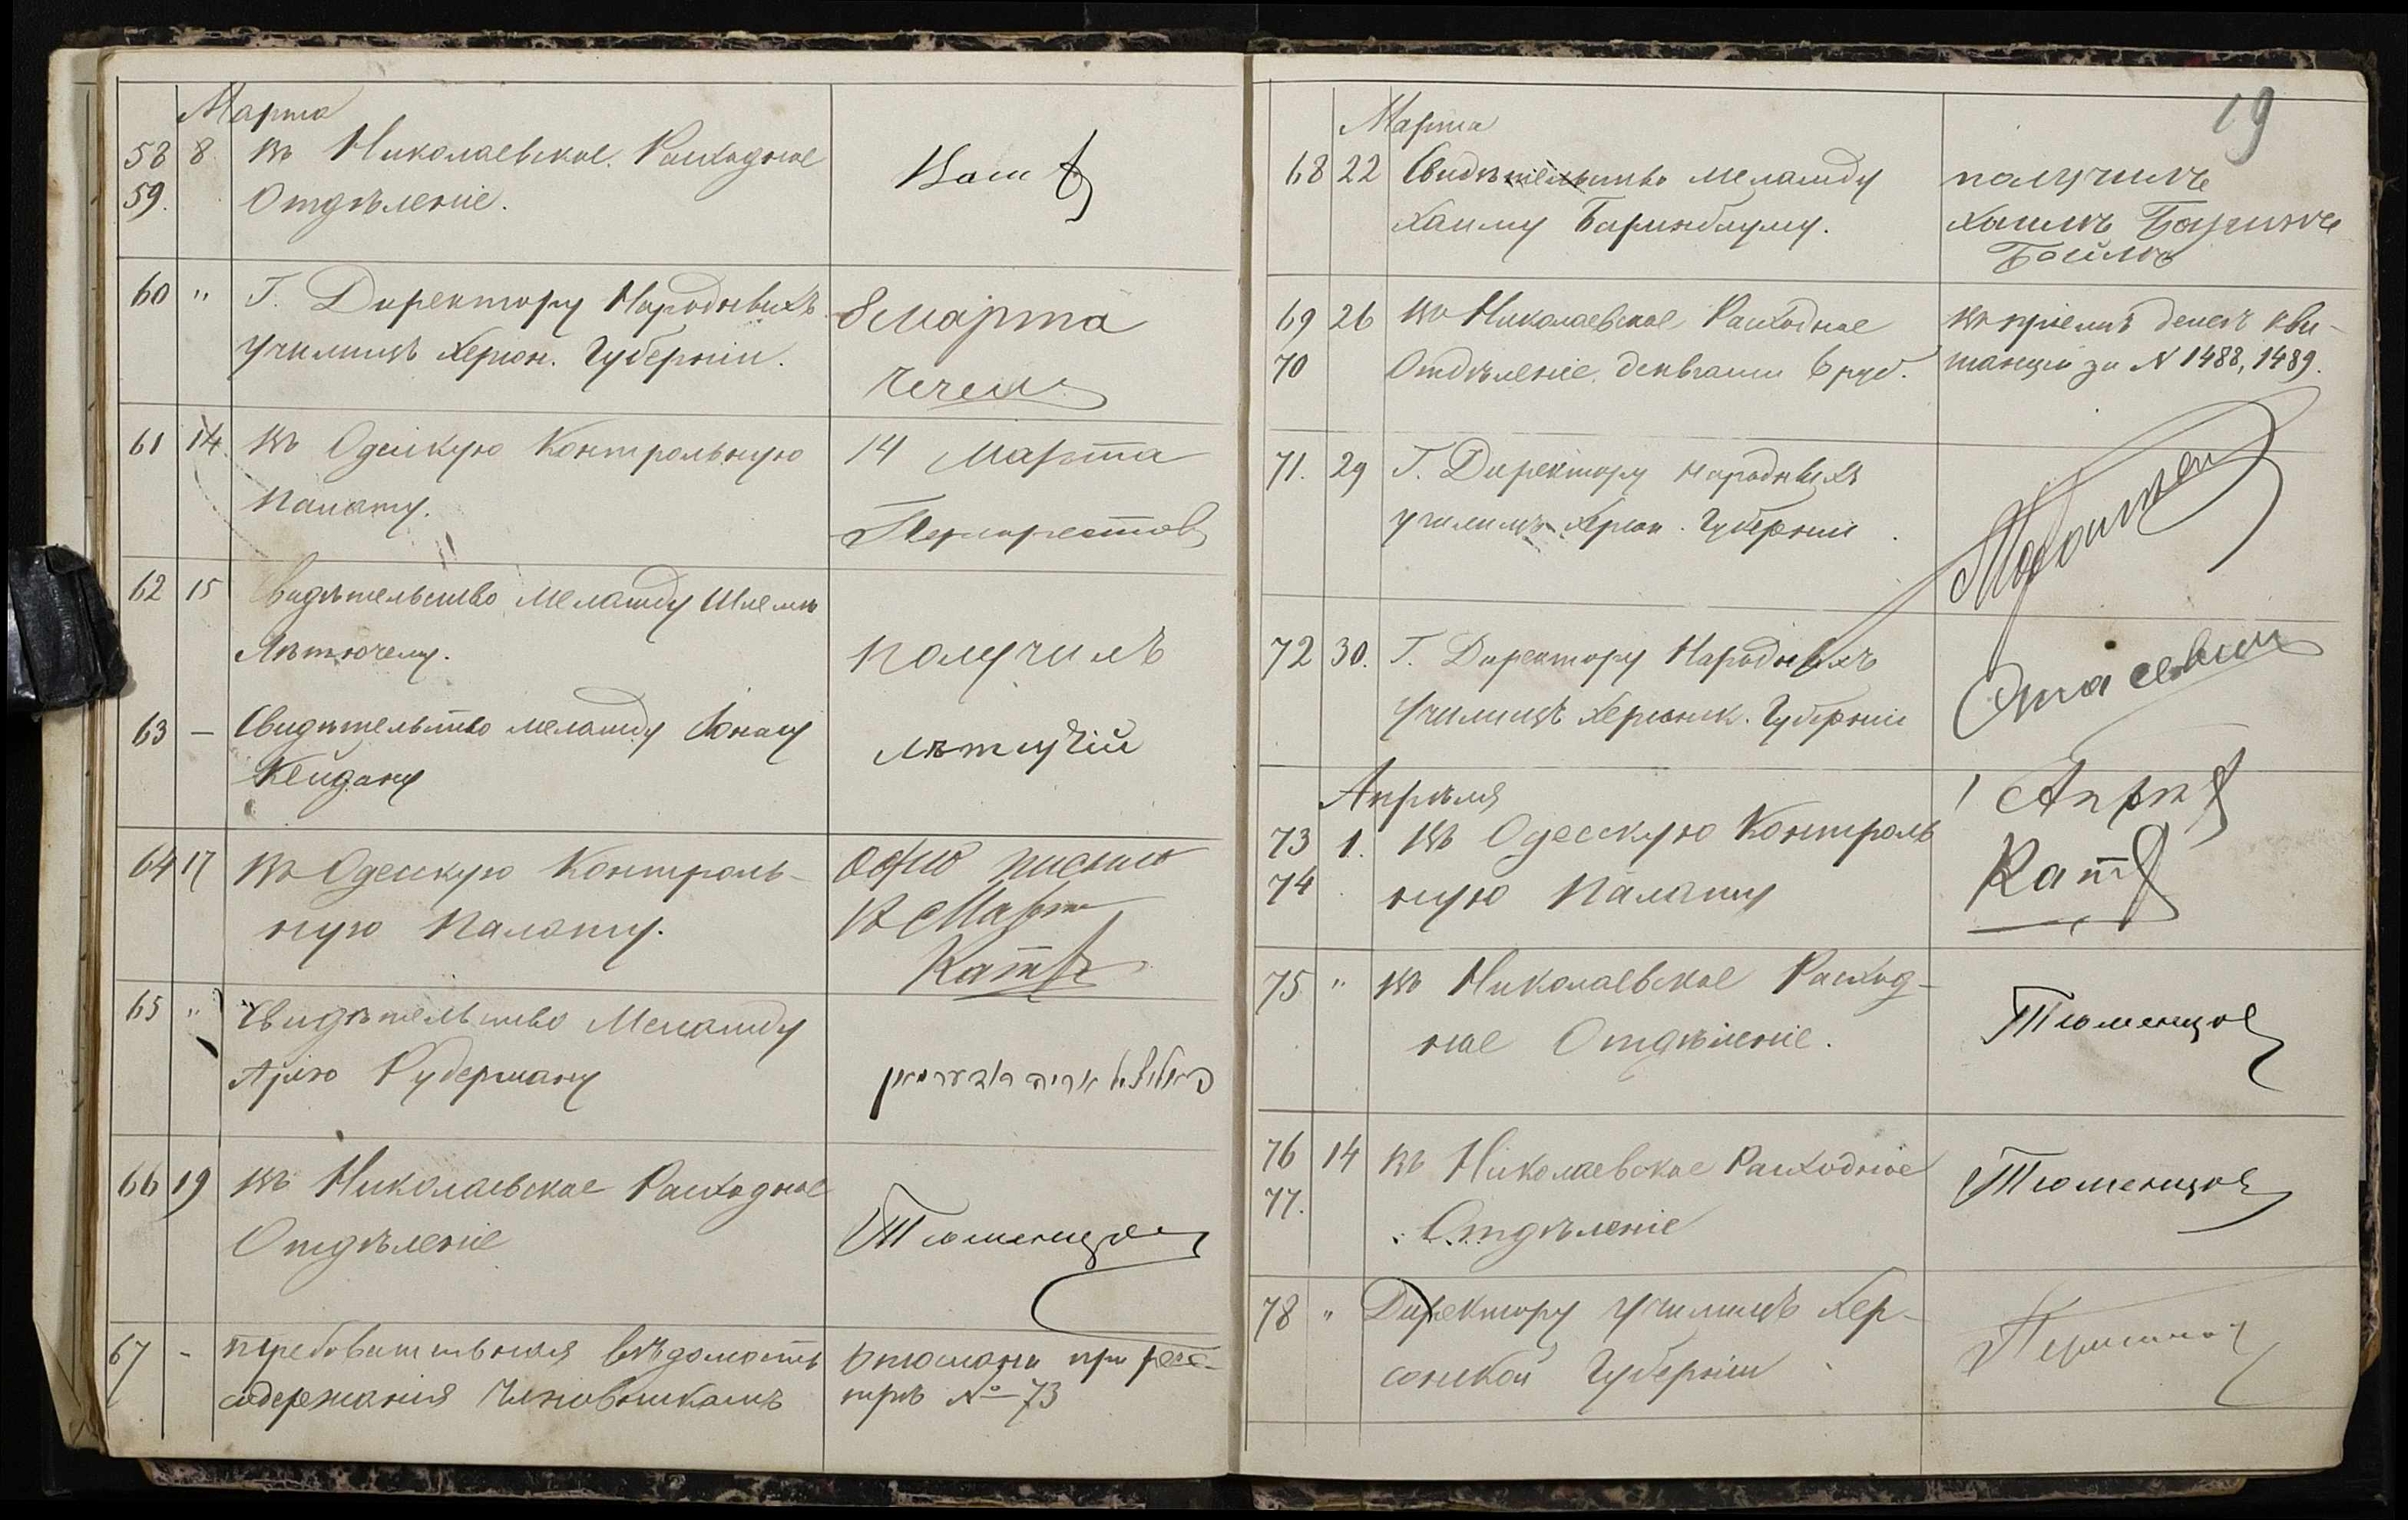 Марта
58 8 въ Николаевское Расходное
59. Отдѣленіе.
60 " Г. Директору Народныхъ 8 марта
училищъ Херсон. Губерніи.
61 14. въ Одесскую Контрольную 14 Марта
Палату.
62 15 Свидѣтельство меламду Шлемѣ
Лѣтючему. получилъ
63 — Свидѣтельство меламду
Кейдану
64 17 въ Одесскую Контроль- одно письмо
ную Палату. Марта
65 " Свидѣтельство Меламду
Арію Рудерману אריה רודערמאן
66 19 въ Николаевское Расходное
Отдѣленіе Тюменцов
67 - требовательная вѣдомость отослана при реэс-
содержанія Чиновникамъ трѣ № 73
19
Марта
68 22 Свидѣтельство меламду получилъ
Хаиму Баринблуму. Хаимъ
69 26 въ Николаевское Расходное въ пріемѣ денегъ кви-
70 Отдѣленіе деньгами 6 руб. танціи за № 1488, 1489.
71. 29 Г. Директору народныхъ
училищъ Херсон. Губерніи
72 30. Г. Директору Народныхъ
Училищъ Херсонск. Губерніи
Апрѣля 1 Апрѣ
73 1. въ Одесскую Контроль
74 ную Палату
75 " въ Николаевское Расход-
ное Отдѣленіе. Тюменцов
76 14 въ Николаевское Расходное Тюменцов
77. Отдѣленіе
78 " Директору училищъ Хер-
сонской Губерніи